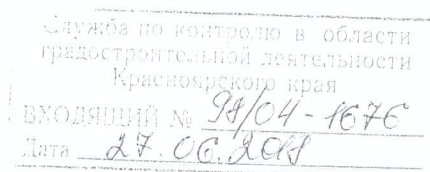 Служба по контролю в области
градостроительной деятельности
Красноярского края
ВХОДЯЩИЙ № 98/04-1676
Дата 27.06.2018